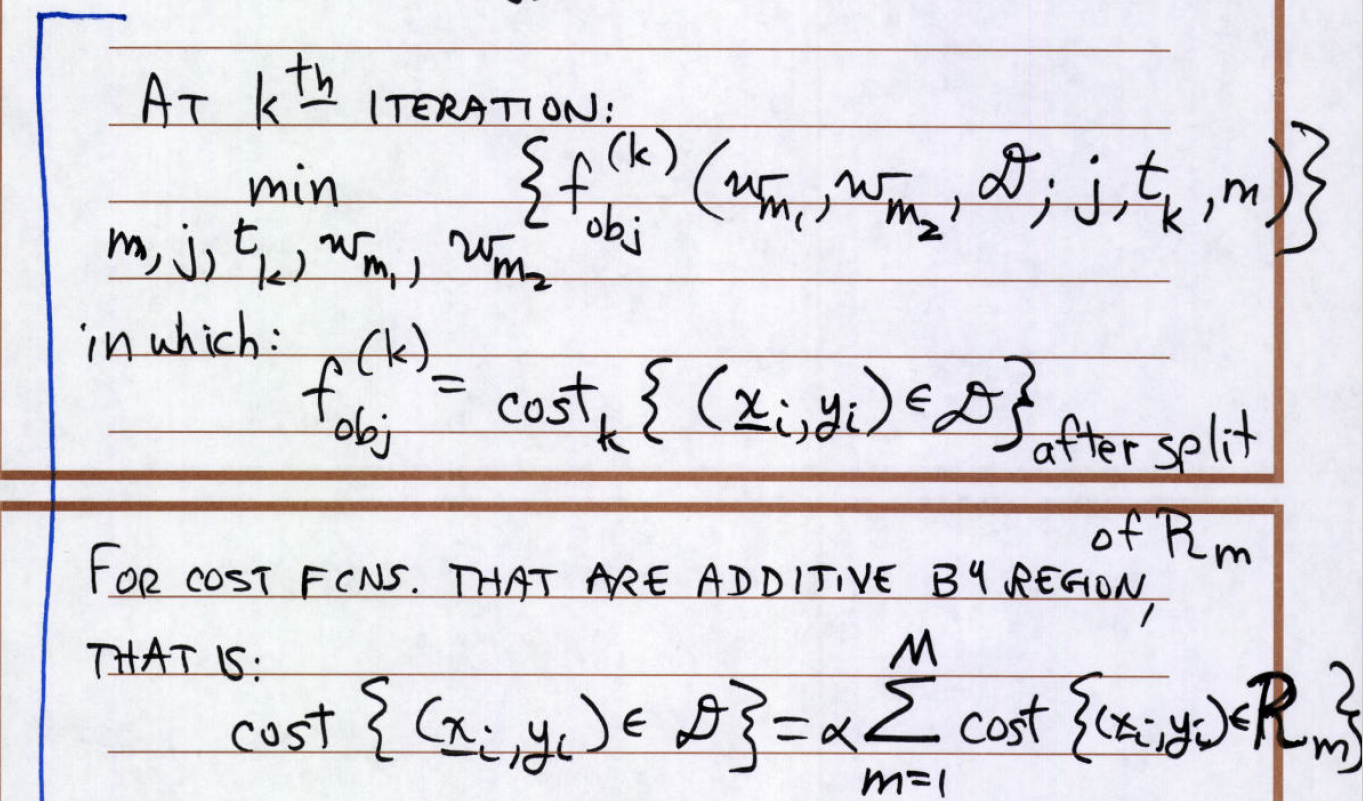 AT kth ITERATION:
min {f_obj^(k) (w_m₁, w_m₂, 𝒟; j, t_k, m)}
m, j, t_k, w_m₁, w_m₂
in which:
f_obj^(k) = cost_k { (x_i, y_i) ∈ 𝒟} after split
of R_m
FOR COST FCNS. THAT ARE ADDITIVE BY REGION,
THAT IS:
cost { (x_i, y_i) ∈ 𝒟} = α Σ_{m=1}^{M} cost {(x_i, y_i) ∈ R_m}